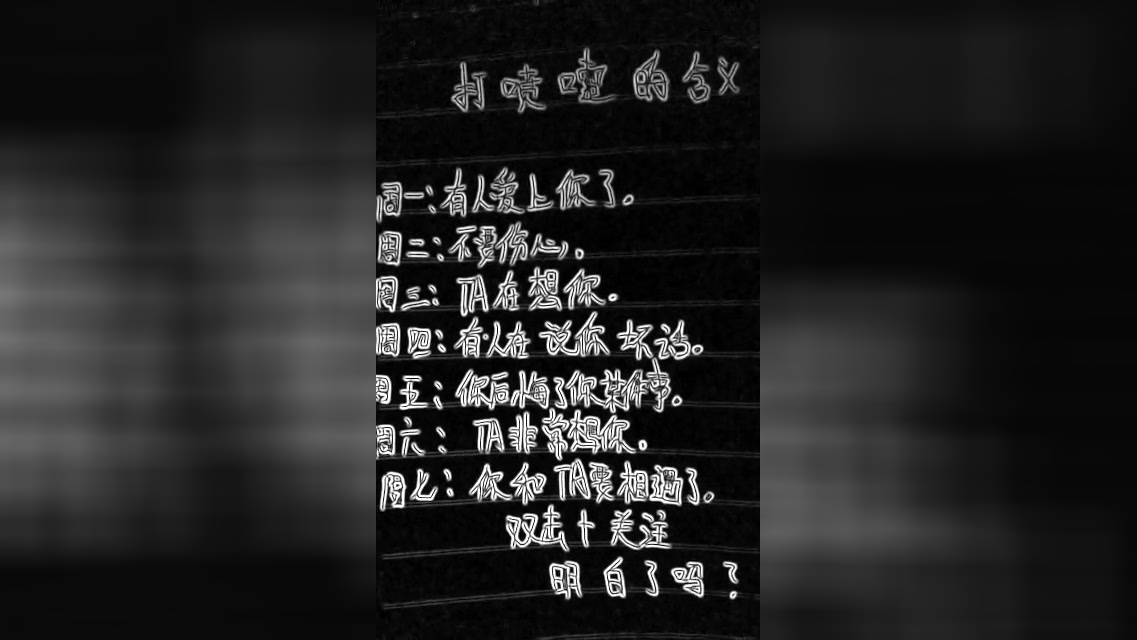 打喷嚏的含义
周一:有人爱上你了。
周二:不要伤心。
周三:TA在想你。
周四:有人在说你坏话。
周五:你后悔了你某件事。
周六:TA非常想你。
周七:你和TA要相遇了。
双击+关注
明白了吗?